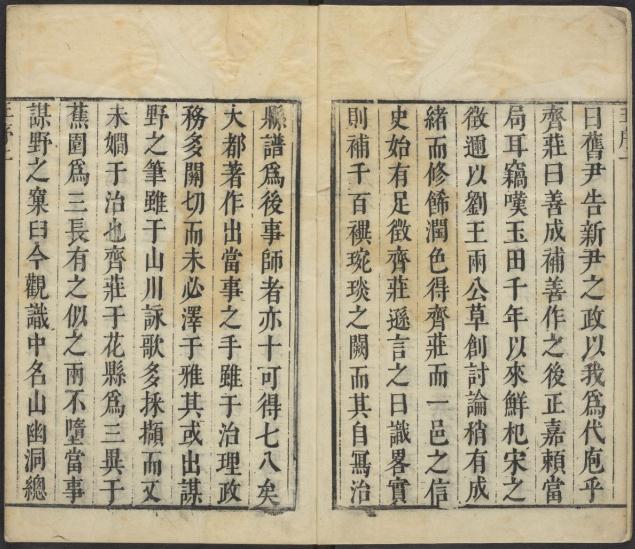 曰舊尹告新尹之政以我爲代庖乎
齊莊曰善成補善作之後正嘉賴當
局耳竊嘆玉田千年以來鮮杞宋之
徵邇以劉王兩公草創討論稍有成
緒而修餙潤色得齊莊而一邑之信
史始有足徵齊莊遜言之曰識畧實
則補千百禩琬琰之闕而其自寫治
縣譜爲後事師者亦十可得七八矣
大都著作出當事之手雖于治理政
務多關切而未必澤于雅其或出謀
野之筆雖于山川詠歌多採擷而又
未嫺于治也齊莊于花縣爲三異于
蕉園爲三長有之似之兩不墮當事
謀野之窠臼今觀識中名山幽洞總